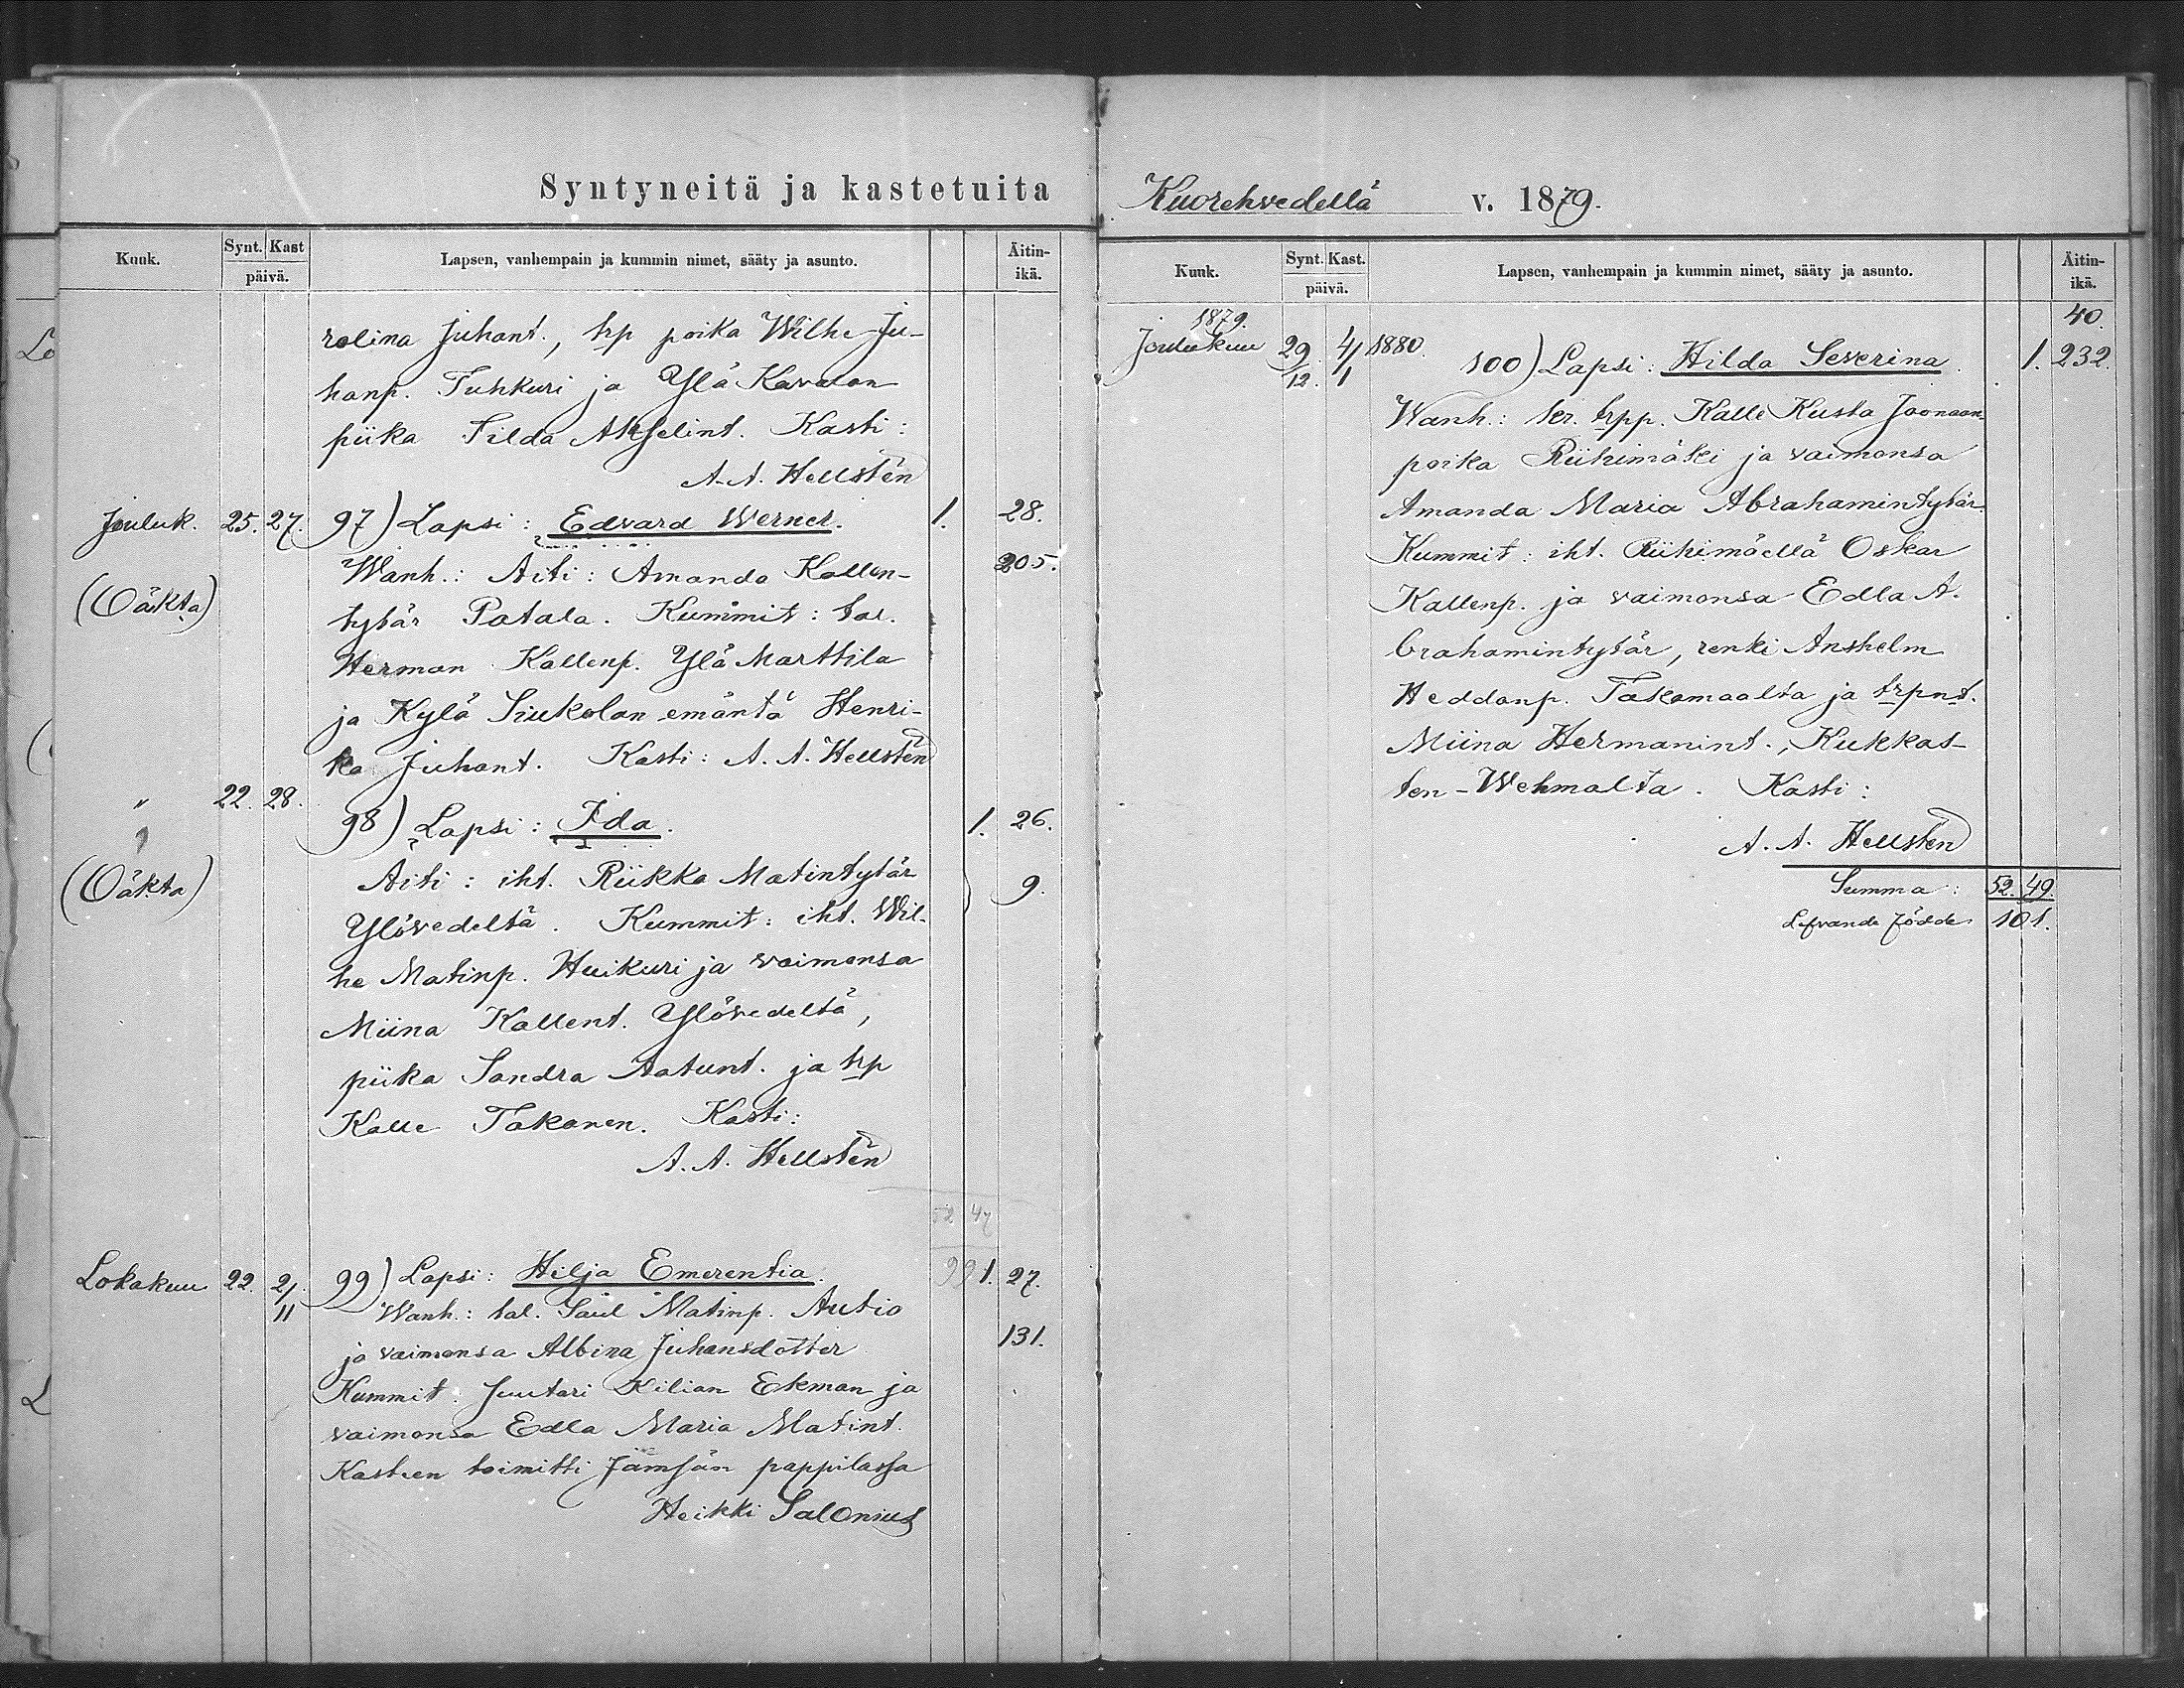 Syntyneitä ja kastetuita Kuorehvedellä v. 1879.
Kuuk. Synt. Kast päivä. Lapsen, vanhempain ja kummin nimet, sääty ja asunto. Äitin-ikä.
rolina Juhant., trp poika Wilhe Ju-
hanp. Tuhkuri ja Ylä Kavalan
piika Tilda Akselint. Kasti:
A. A. Hellstén
Jouluk. 25. 27. 97) Lapsi: Edvard Werner. 1. 28.
Wanh.: Äiti: Amanda Kallen- 205.
(Oäkta) tytär Patala. Kummit: tal.
Herman Kallenp. Ylä Marttila
ja Kylä Siukolan emäntä Henri-
ka Juhant. Kasti: A. A. Hellstén
" 22. 28. 98) Lapsi: Ida. 1. 26.
(Oäkta) Äiti: iht. Riikka Matintytär 9.
Ylövedeltä. Kummit: iht. Wil-
he Matinp. Huikuri ja vaimonsa
Miina Kallent. Ylövedeltä,
piika Sandra Aatunt. ja trp
Kalle Takanen. Kasti:
A. A. Hellstén
52 47
Lokakuu 22. 2/11 99) Lapsi: Hilja Emerentia. 99 1. 27.
Wanh.: tal. Saul Matinp. Autio
ja vaimonsa Albina Juhansdotter 131.
Kummit: Juutari Kilian Ekman ja
vaimonsa Edla Maria Matint.
Kasteen toimitti Jämsän pappilassa
Heikki Salonius
Kuuk. Synt. Kast. päivä. Lapsen, vanhempain ja kummin nimet, sääty ja asunto. Äitin-ikä.
1879. 40.
Joulukuu 29/12. 4/1 1880. 100) Lapsi: Hilda Severina. 1. 232.
Wanh.: trpp. Kalle Kusta Joonaan-
poika Riihimäki ja vaimonsa
Amanda Maria Abrahamintytär.
Kummit: iht. Riihimäellä Oskar
Kallenp. ja vaimonsa Edla A-
brahamintytär, renki Anshelm
Heddanp. Takamaalta ja trpnt.
Miina Hermanint., Kukkas-
ten-Wehmalta. Kasti:
A. A. Hellstén
Summa: 52. 49.
Lefvande födde 101.